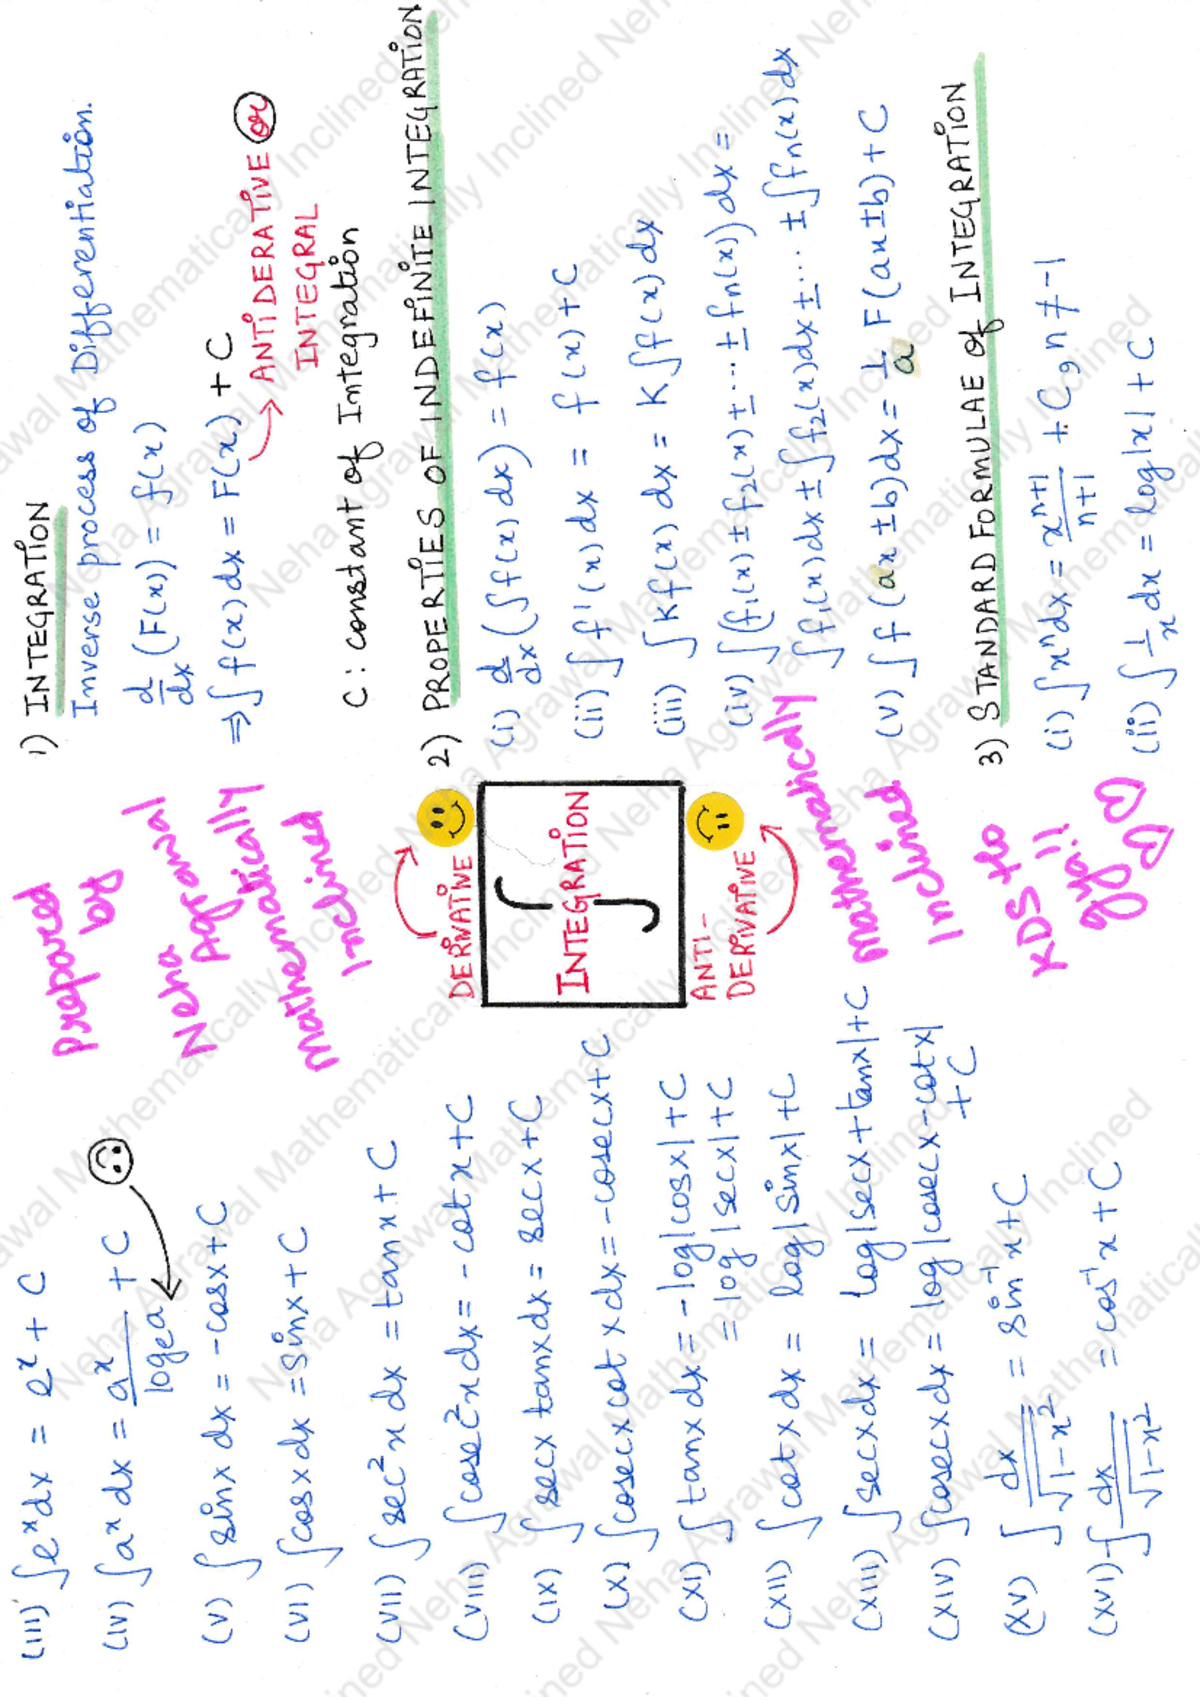 1) INTEGRATION
Inverse process of Differentiation.
d/dx (F(x)) = f(x)
⇒ ∫f(x)dx = F(x) + C
→ ANTIDERATIVE or
INTEGRAL
C: constant of Integration
2) PROPERTIES OF INDEFINITE INTEGRATION
(i) d/dx (∫f(x)dx) = f(x)
(ii) ∫f'(x)dx = f(x) + C
(iii) ∫Kf(x)dx = K∫f(x)dx
(iv) ∫(f₁(x) ± f₂(x) ± ... ± fn(x))dx =
∫f₁(x)dx ± ∫f₂(x)dx ± ... ± ∫fn(x)dx
(v) ∫f(ax±b)dx = 1/a F(ax±b) + C
3) STANDARD FORMULAE of INTEGRATION
(i) ∫xⁿdx = xⁿ⁺¹/n+1 + C, n ≠ -1
(ii) ∫1/x dx = log|x| + C
prepared
by
Neha
Agrawal
Mathematically
Inclined
DERIVATIVE
INTEGRATION
∫
ANTI-
DERIVATIVE
Mathematically
Inclined
KDS tho
gya!!
(iii) ∫eˣdx = eˣ + C
(iv) ∫aˣdx = aˣ/logₑa + C
(v) ∫sinx dx = -cosx + C
(vi) ∫cosx dx = sinx + C
(vii) ∫sec²x dx = tanx + C
(viii) ∫cosec²x dx = -cotx + C
(ix) ∫secx tanx dx = secx + C
(x) ∫cosecx cotx dx = -cosecx + C
(xi) ∫tanx dx = -log|cosx| + C
= log|secx| + C
(xii) ∫cotx dx = log|sinx| + C
(xiii) ∫secx dx = log|secx + tanx| + C
(xiv) ∫cosecx dx = log|cosecx - cotx|
+ C
(xv) ∫dx/√1-x² = sin⁻¹x + C
(xvi) -∫dx/√1-x² = cos⁻¹x + C
Neha Agrawal Mathematically Inclined